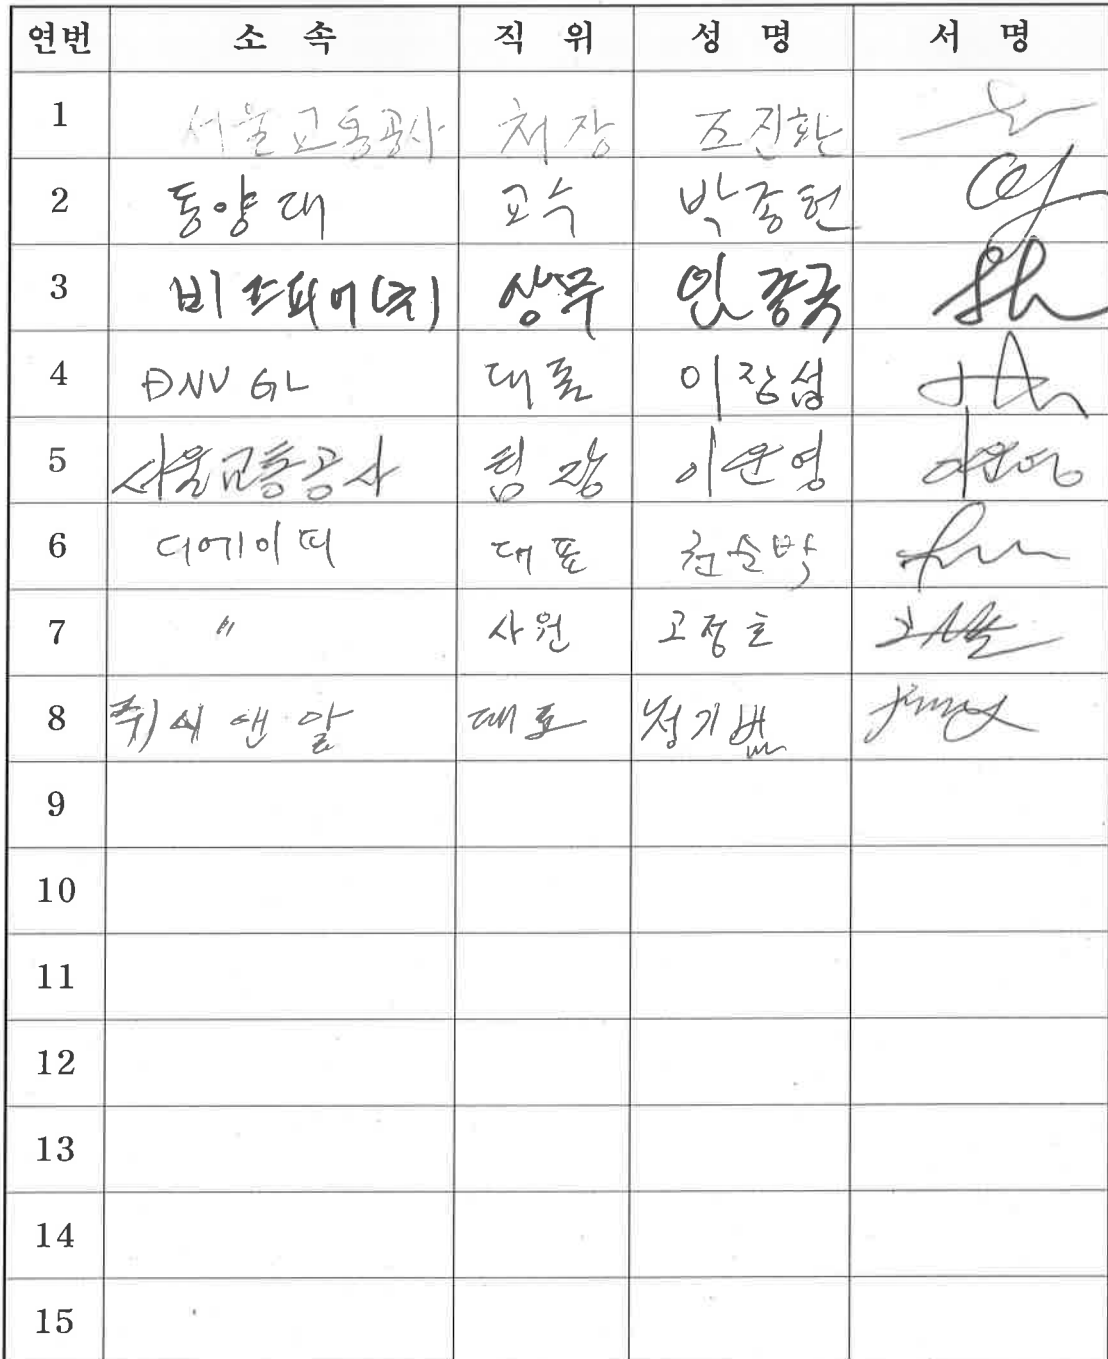 연번 소 속 직 위 성 명 서 명
1 서울교통공사 처장 조진환
2 동양대 교수 박종헌
3 비즈피어(주) 상무
4 DNV GL 대표 이장섭
5 서울교통공사 팀장 이운영 이운영
6 디에이피 대표 권순박
7 〃 사원 고정호
8 주) 씨앤알 대표 정기범
9
10
11
12
13
14
15